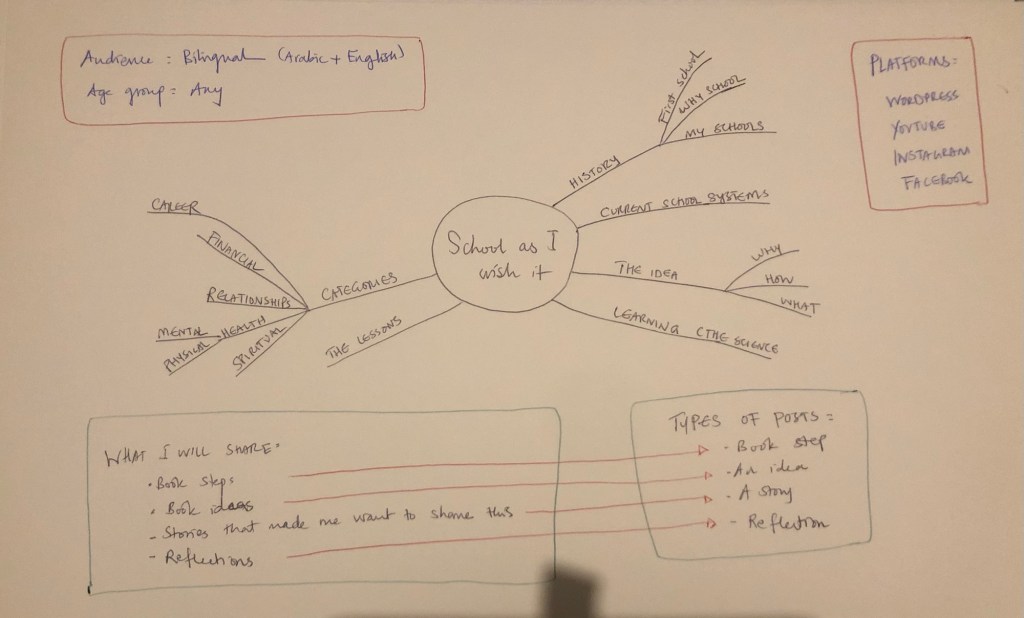 Audience : Bilingual (Arabic + English)
Age group = Any
PLATFORMS =
WORDPRESS
YOUTUBE
INSTAGRAM
FACEBOOK
School as I
wish it
HISTORY
First school
WHY SCHOOL
MY SCHOOLS
CURRENT SCHOOL SYSTEMS
THE IDEA
WHY
HOW
WHAT
LEARNING (THE SCIENCE
THE LESSONS
CATEGORIES
CAREER
FINANCIAL
RELATIONSHIPS
HEALTH
MENTAL
PHYSICAL
SPIRITUAL
WHAT I WILL SHARE:
• Book steps
• Book ideas
- Stories that made me want to share this
- Reflections
TYPES OF POSTS =
- Book step
- An idea
- A story
- Reflection